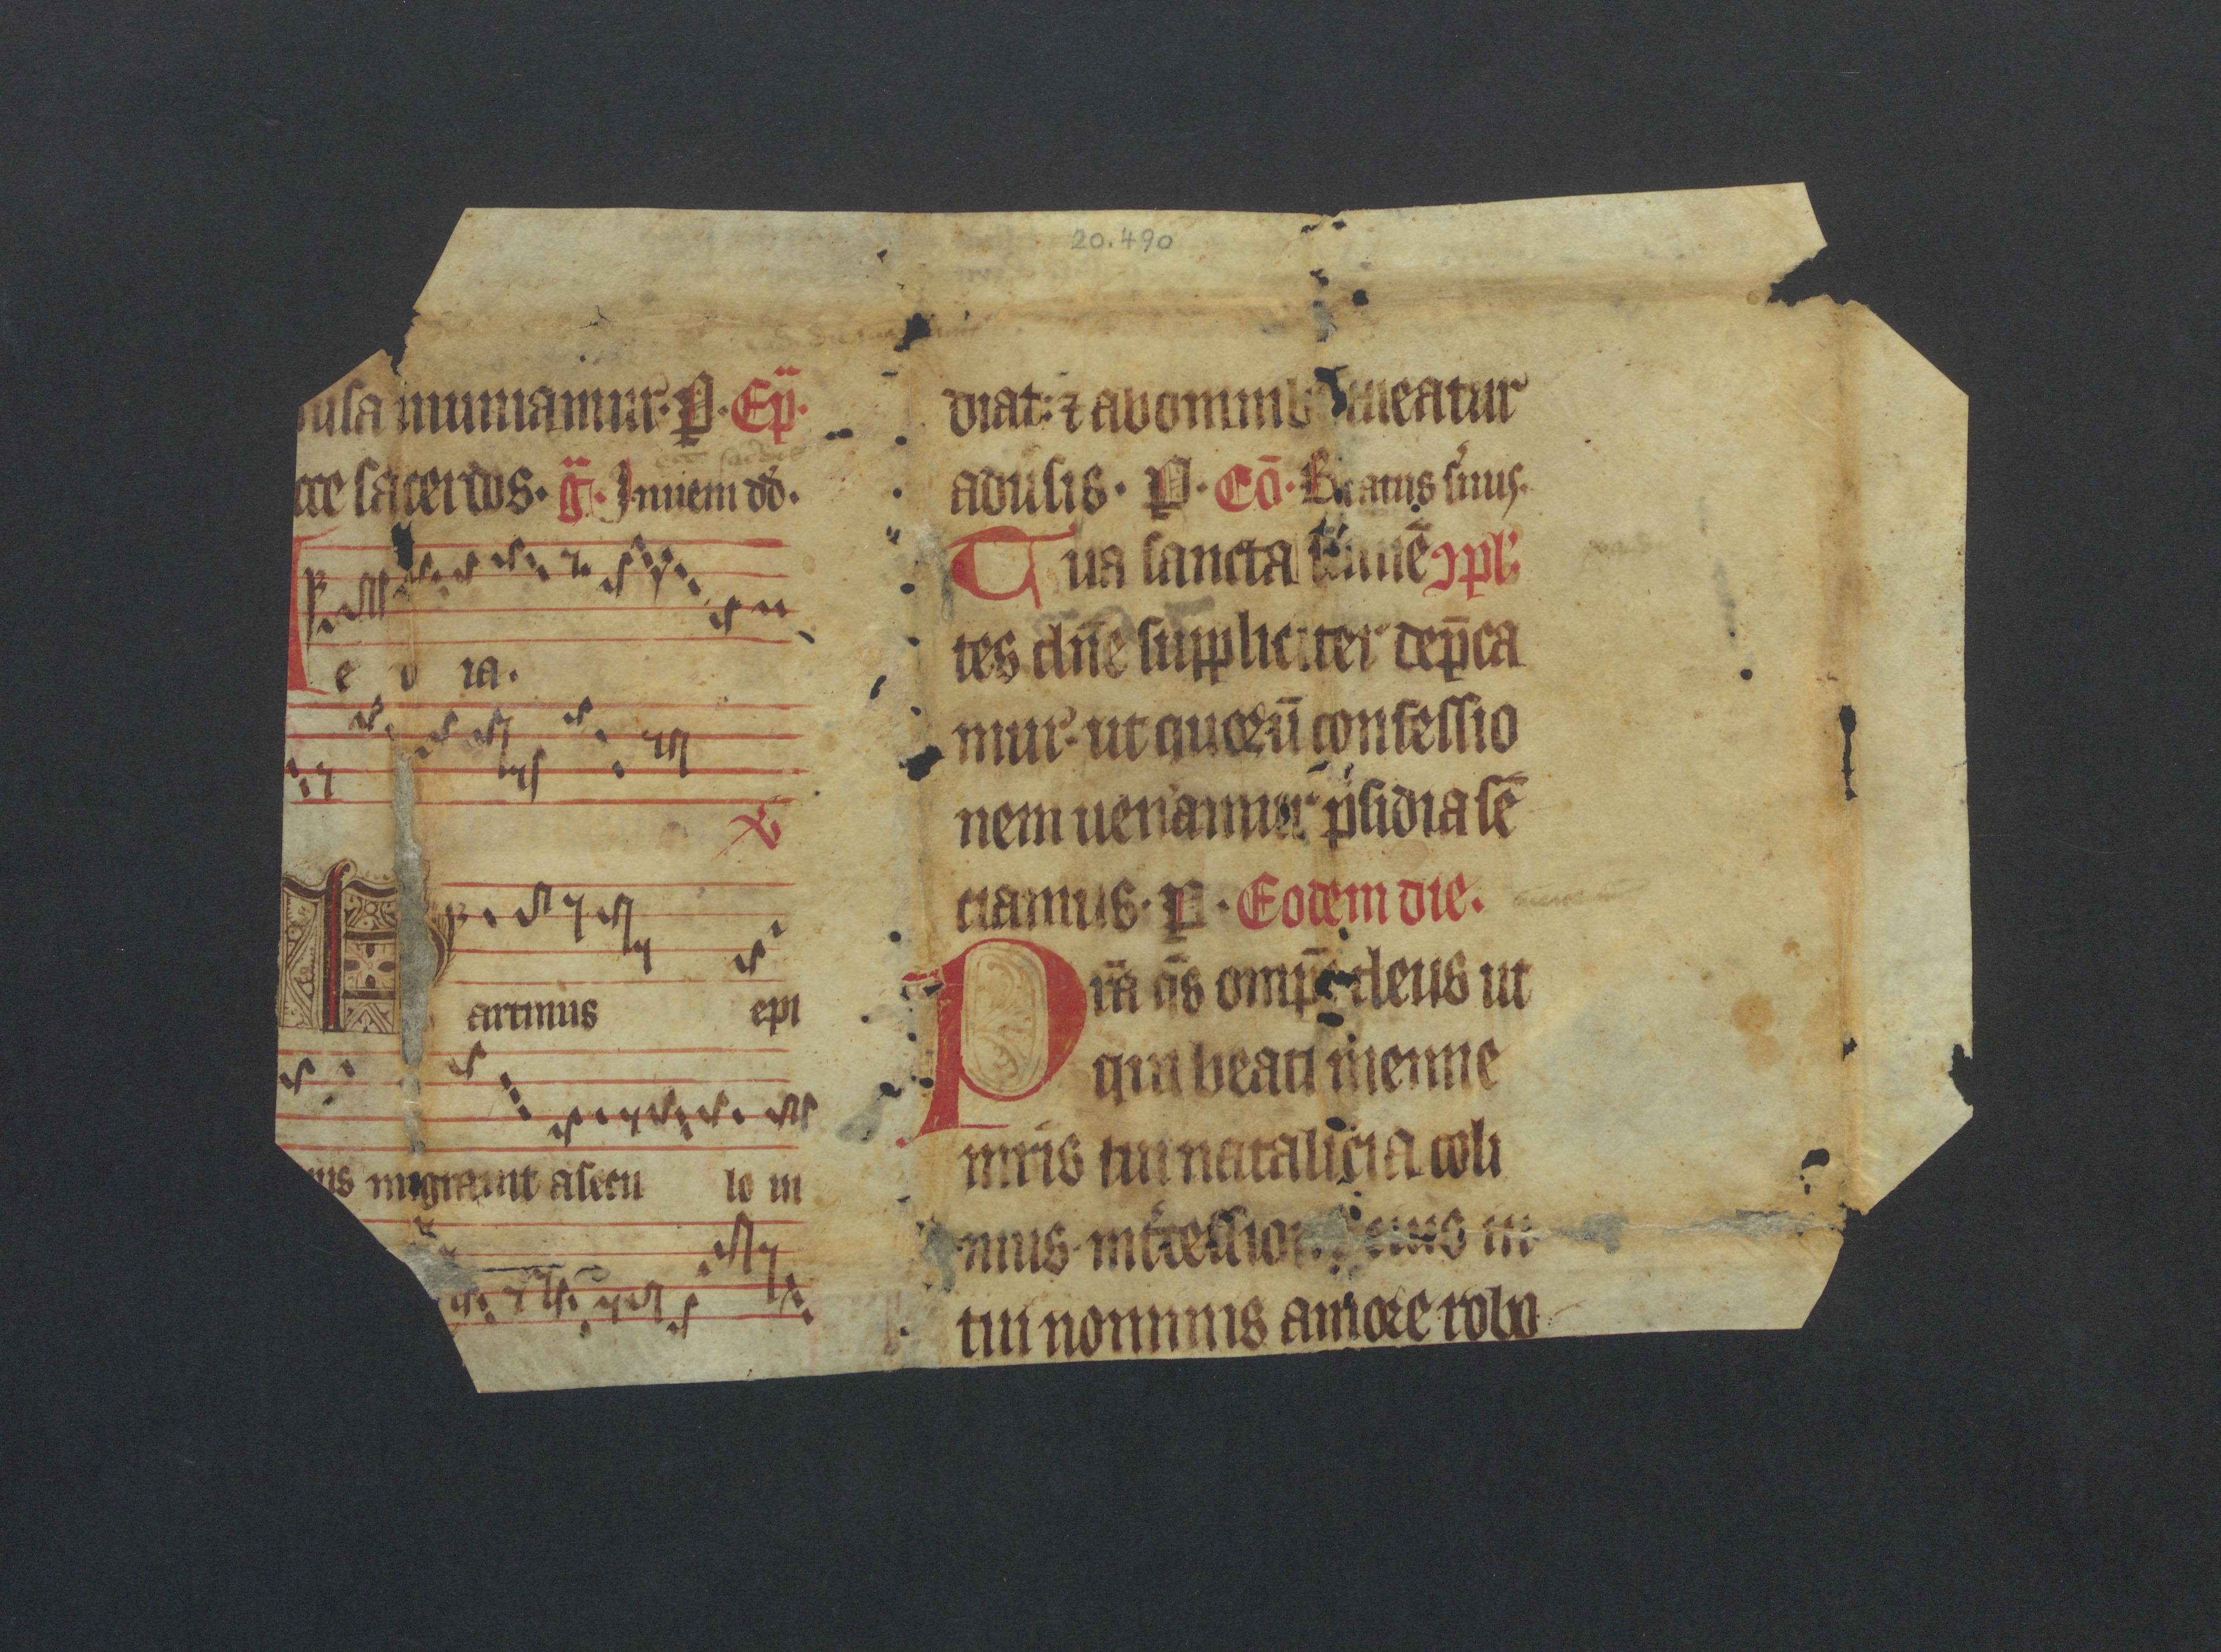 20.490
usa muniamur. P. Ep̄.
cce sacerdos. Ḡ. Inueni dd̄.
e v ia.
artinus epi
us migrauit a secu lo in
diat: ⁊ ab omnib tueatur
aduersis. P. Cō. Beatus seruus.
Tua sancta sumē ꝯpl
tes dn̄e suppliciter dep̄ca
mur. ut quorū confessio
nem ueneramur p̄sidia sē
ciamus. P. Eodem die.
P ra q̄s omp̄s deus ut
qui beati menne
mris tui natalicia coli
mus. intercessione eius in
tui nominis amore robo